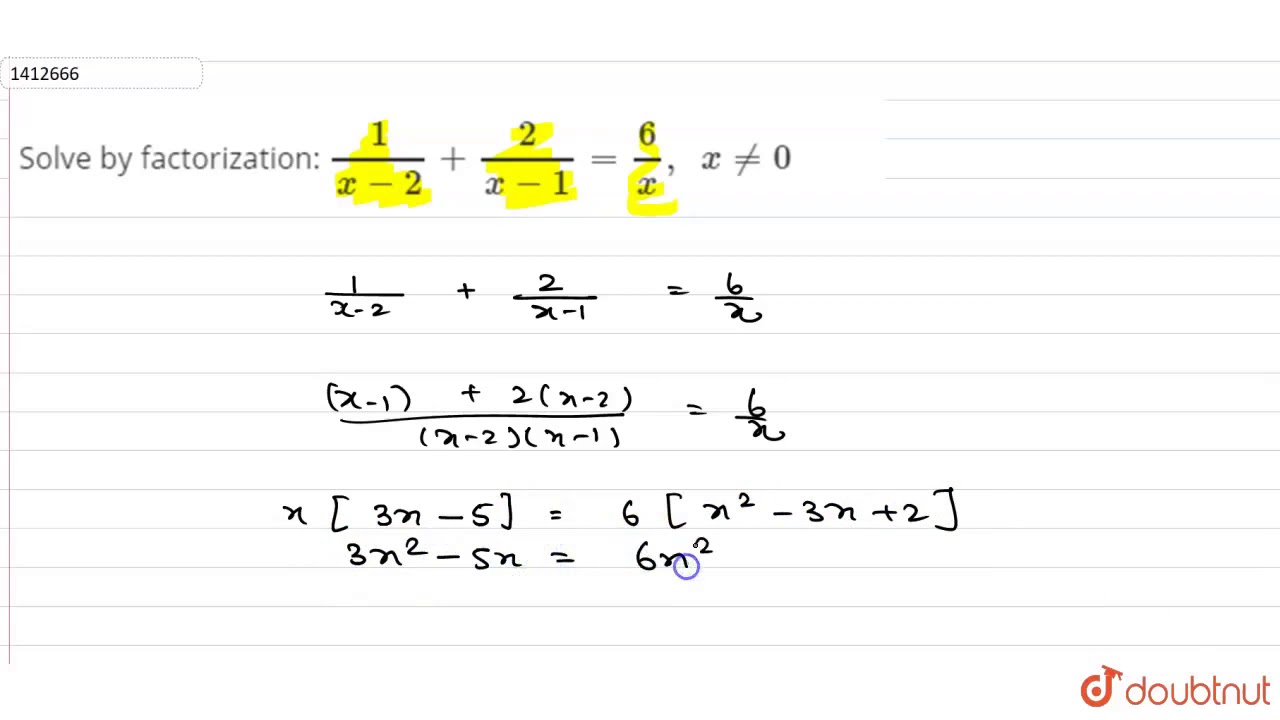 1412666
Solve by factorization: 1/(x − 2) + 2/(x − 1) = 6/x, x ≠ 0
1/(x-2) + 2/(x-1) = 6/x
((x-1) + 2(x-2))/((x-2)(x-1)) = 6/x
x [ 3x - 5 ] = 6 [ x² - 3x + 2 ]
3x² - 5x = 6x²
doubtnut